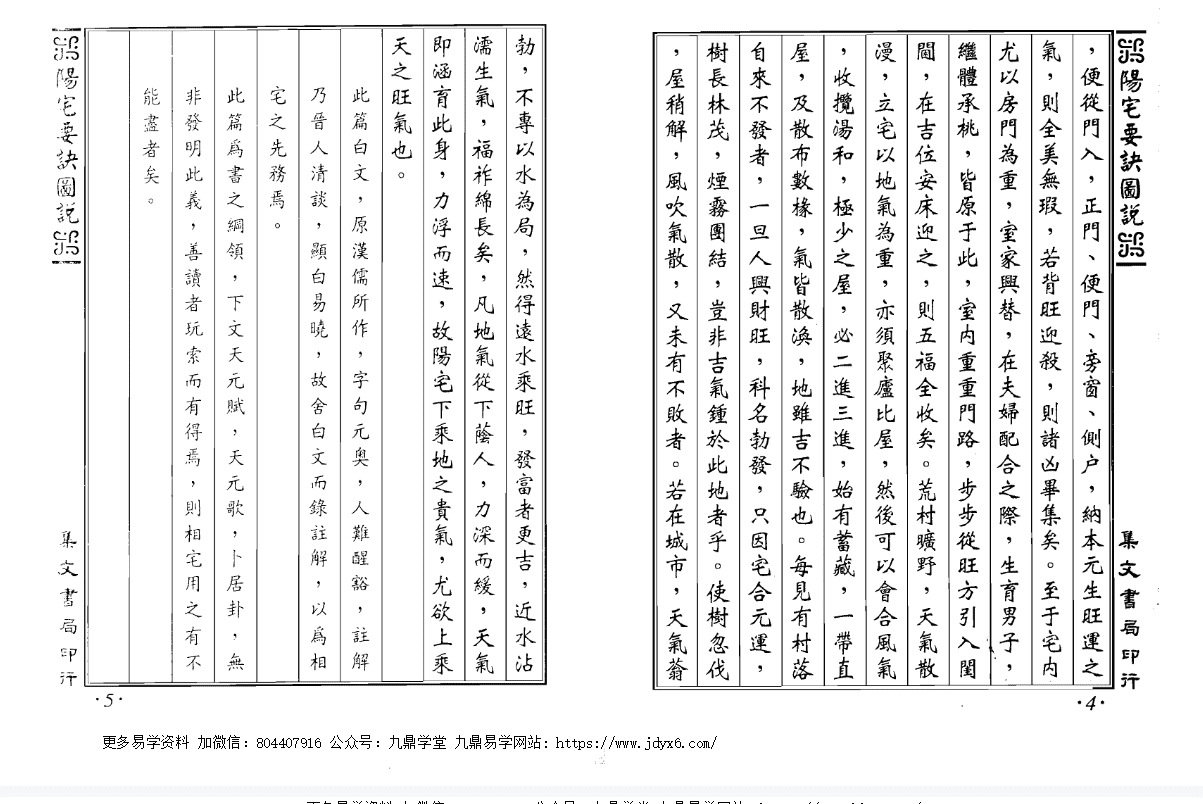 陽宅要訣圖說
，便從門入，正門、便門、旁窗、側户，納本元生旺運之
氣，則全美無瑕，若背旺迎殺，則諸凶畢集矣。至于宅内
尤以房門為重，室家興替，在夫婦配合之際，生育男子，
繼體承桃，皆原于此，室内重重門路，步步從旺方引入閨
闥，在吉位安床迎之，則五福全收矣。荒村曠野，天氣散
漫，立宅以地氣為重，亦須聚廬比屋，然後可以會合風氣
，收攬湯和，極少之屋，必二進三進，始有蓄藏，一帶直
屋，及散布數椽，氣皆散渙，地雖吉不驗也。每見有村落
自來不發者，一旦人興財旺，科名勃發，只因宅合元運，
樹長林茂，煙霧團結，豈非吉氣鍾於此地者乎。使樹忽伐
，屋稍解，風吹氣散，又未有不敗者。若在城市，天氣蓊
集文書局印行
·4·
勃，不專以水為局，然得遠水乘旺，發富者更吉，近水沾
濡生氣，福祚綿長矣，凡地氣從下蔭人，力深而緩，天氣
即涵育此身，力浮而速，故陽宅下乘地之貴氣，尤欲上乘
天之旺氣也。
此篇白文，原漢儒所作，字句元奥，人難醒豁，註解
乃晉人清談，顯白易曉，故舍白文而錄註解，以爲相
宅之先務焉。
此篇爲書之綱領，下文天元賦，天元歌，卜居卦，無
非發明此義，善讀者玩索而有得焉，則相宅用之有不
能盡者矣。
陽宅要訣圖說
集文書局印行
·5·
更多易学资料 加微信：804407916 公众号：九鼎学堂 九鼎易学网站：https://www.jdyx6.com/